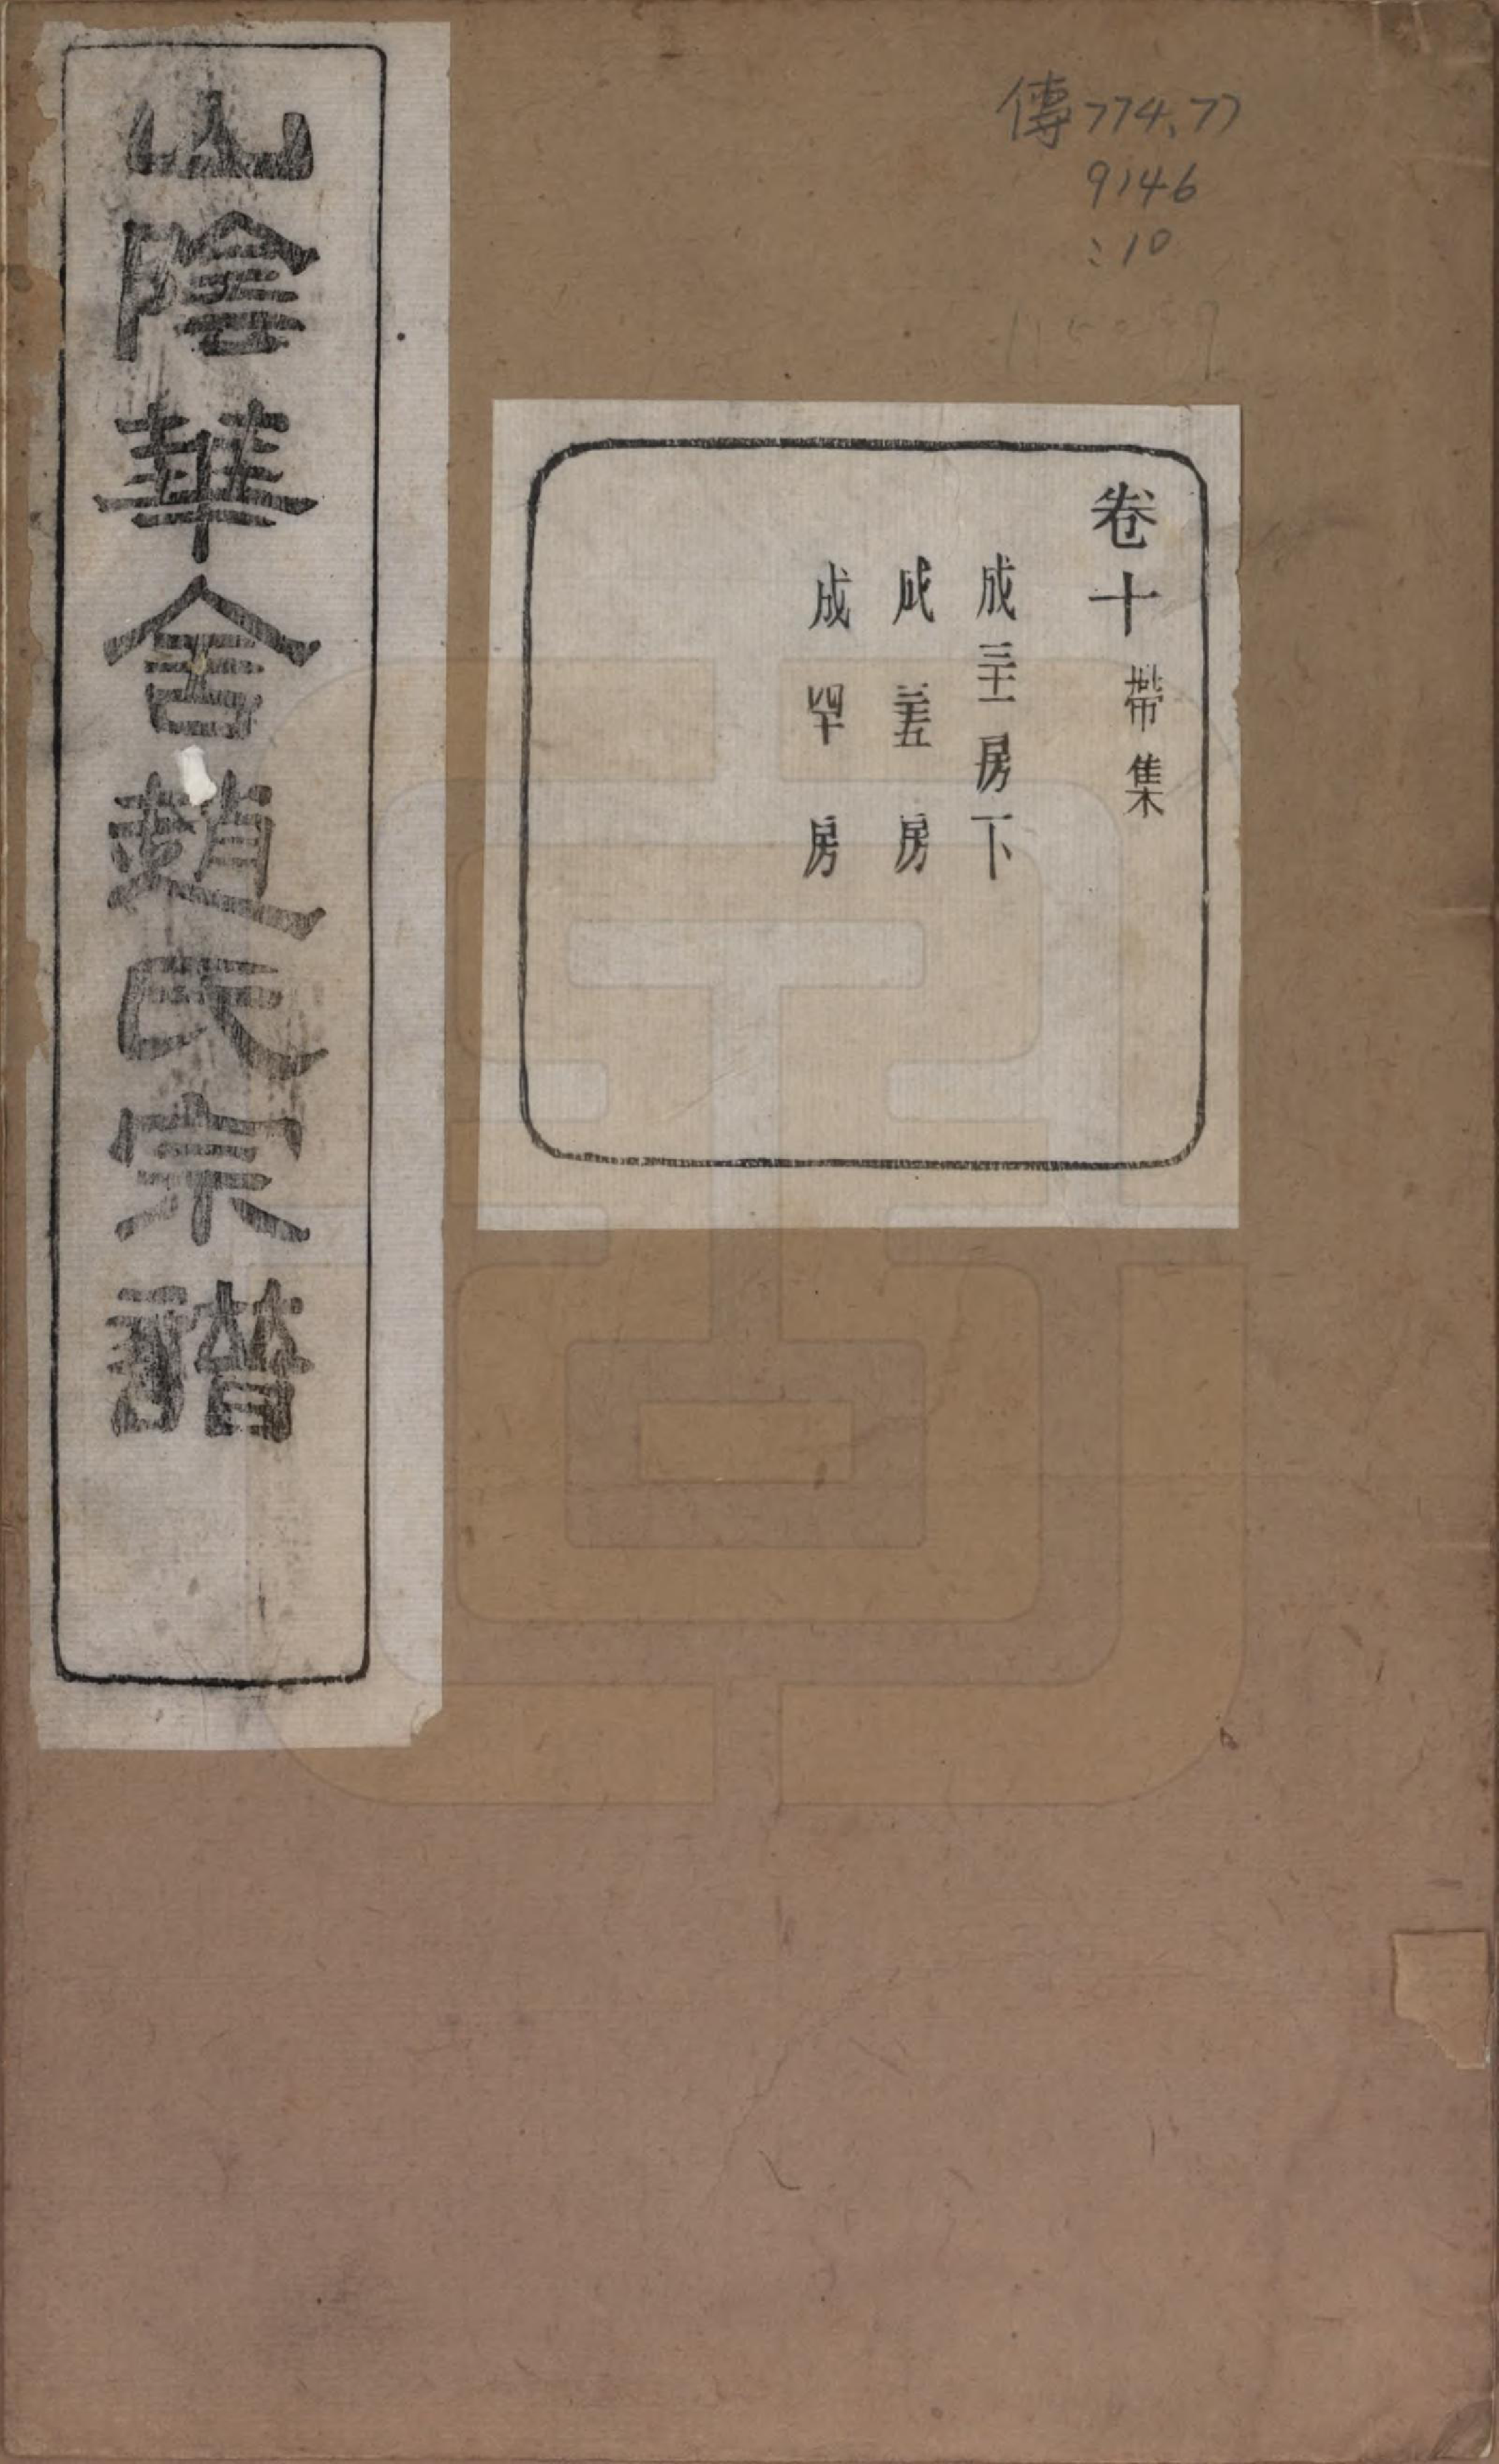 傳774.77
9146
:10
卷十 帶集
成三十一房下
成三十五房
成四十房
山陰華舍趙氏宗譜